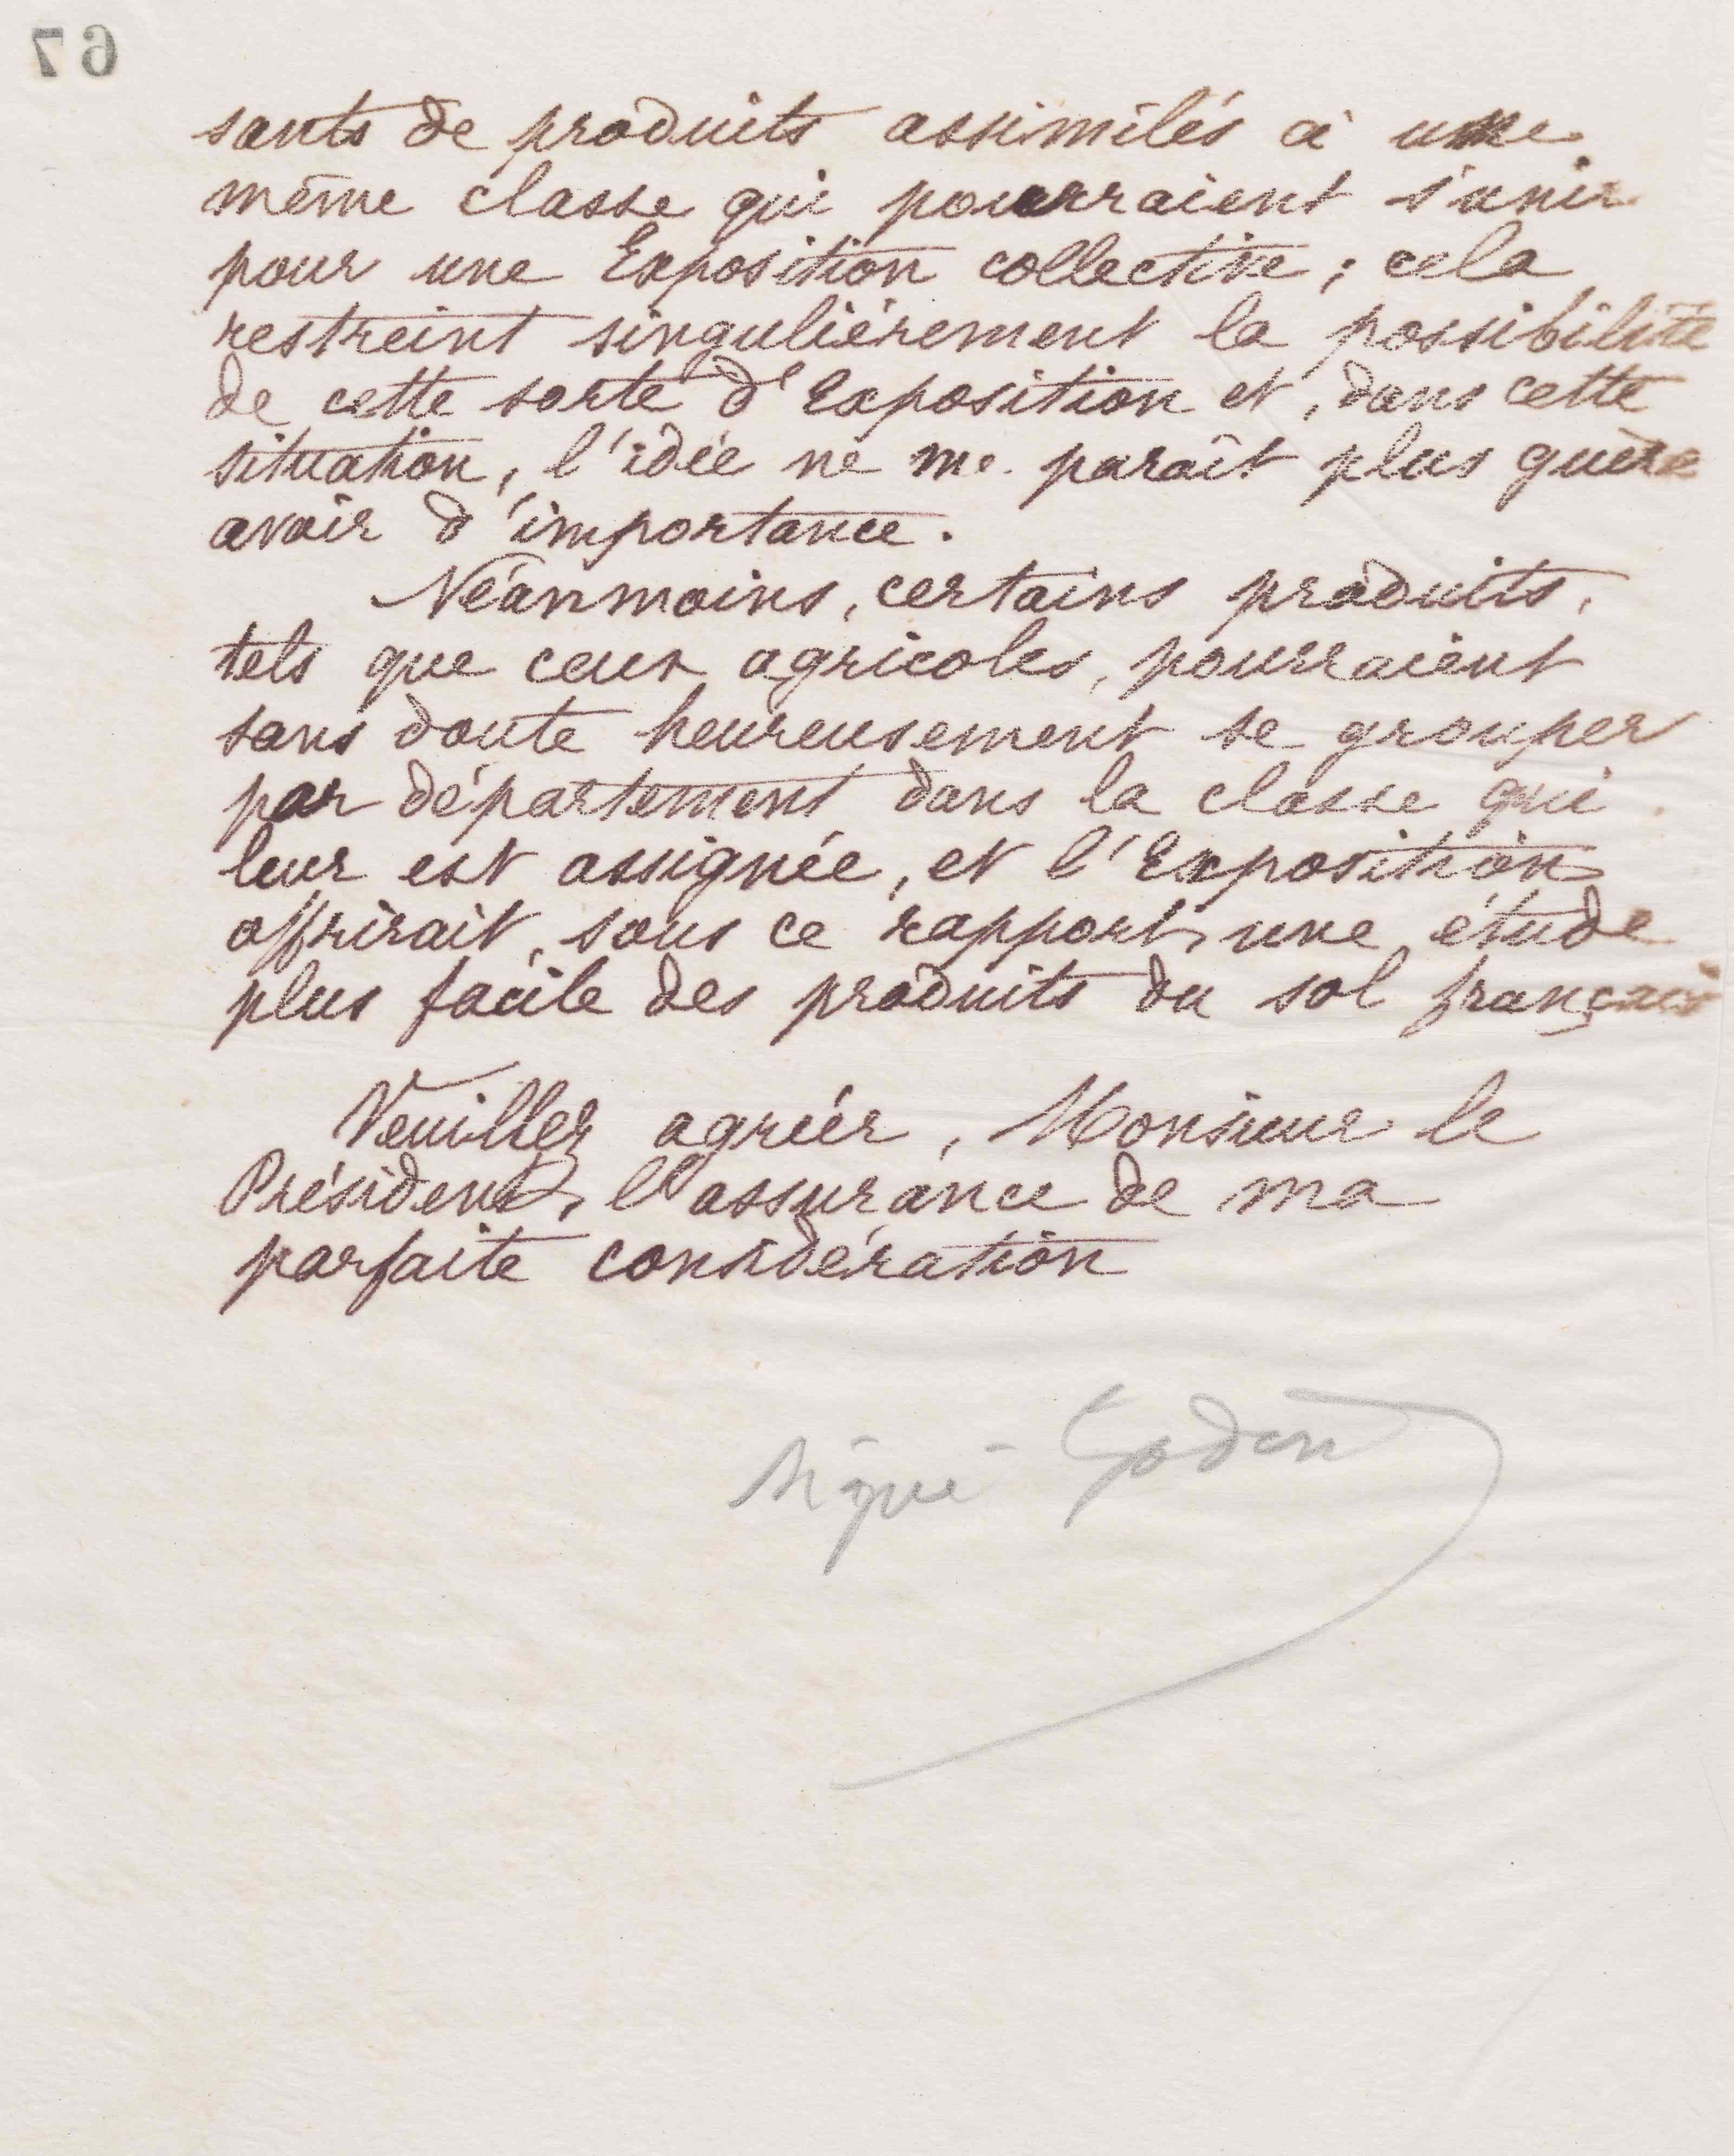 67
sants de produits assimilés à une
même classe qui pourraient s'unir
pour une Exposition collective ; cela
restreint singulièrement la possibilité
de cette sorte d'Exposition et, dans cette
situation, l'idée ne me paraît plus guère
avoir d'importance.
Néanmoins, certains produits,
tels que ceux agricoles, pourraient
sans doute heureusement se grouper
par département dans la classe qui
leur est assignée, et l'Exposition
offrirait, sous ce rapport, une étude
plus facile des produits du sol français
Veuillez agréer, Monsieur le
Président, l'assurance de ma
parfaite considération
signé Godin